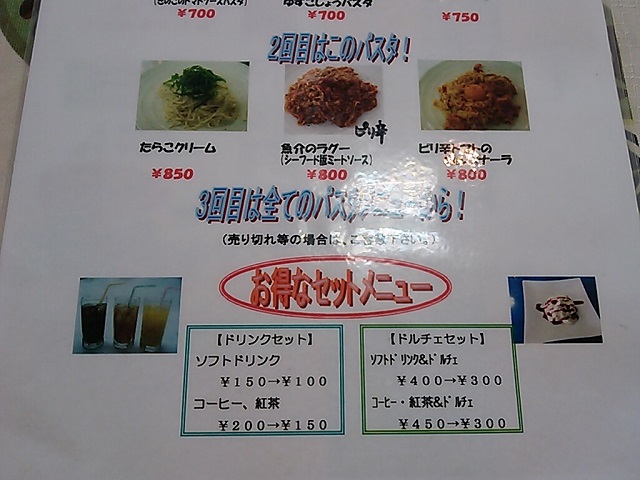 (きのこのトマトソースパスタ)
¥700
ゆずこしょうパスタ
¥700
¥750
2回目はこのパスタ!
たらこクリーム
¥850
魚介のラグー
(シーフード版ミートソース)
ピリ辛
¥800
ピリ辛トマトの
ナーラ
¥800
3回目は全てのパスタメニューから!
(売り切れ等の場合は、ご容赦下さい。)
お得なセットメニュー
【ドリンクセット】
ソフトドリンク
¥150→¥100
コーヒー、紅茶
¥200→¥150
【ドルチェセット】
ソフトドリンク&ドルチェ
¥400→¥300
コーヒー・紅茶&ドルチェ
¥450→¥300